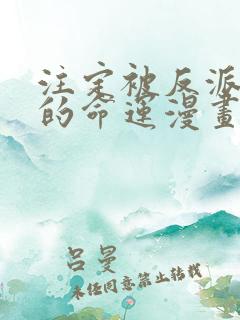 注定被反派
的命运漫畫
吕曼
未经同意禁止转载